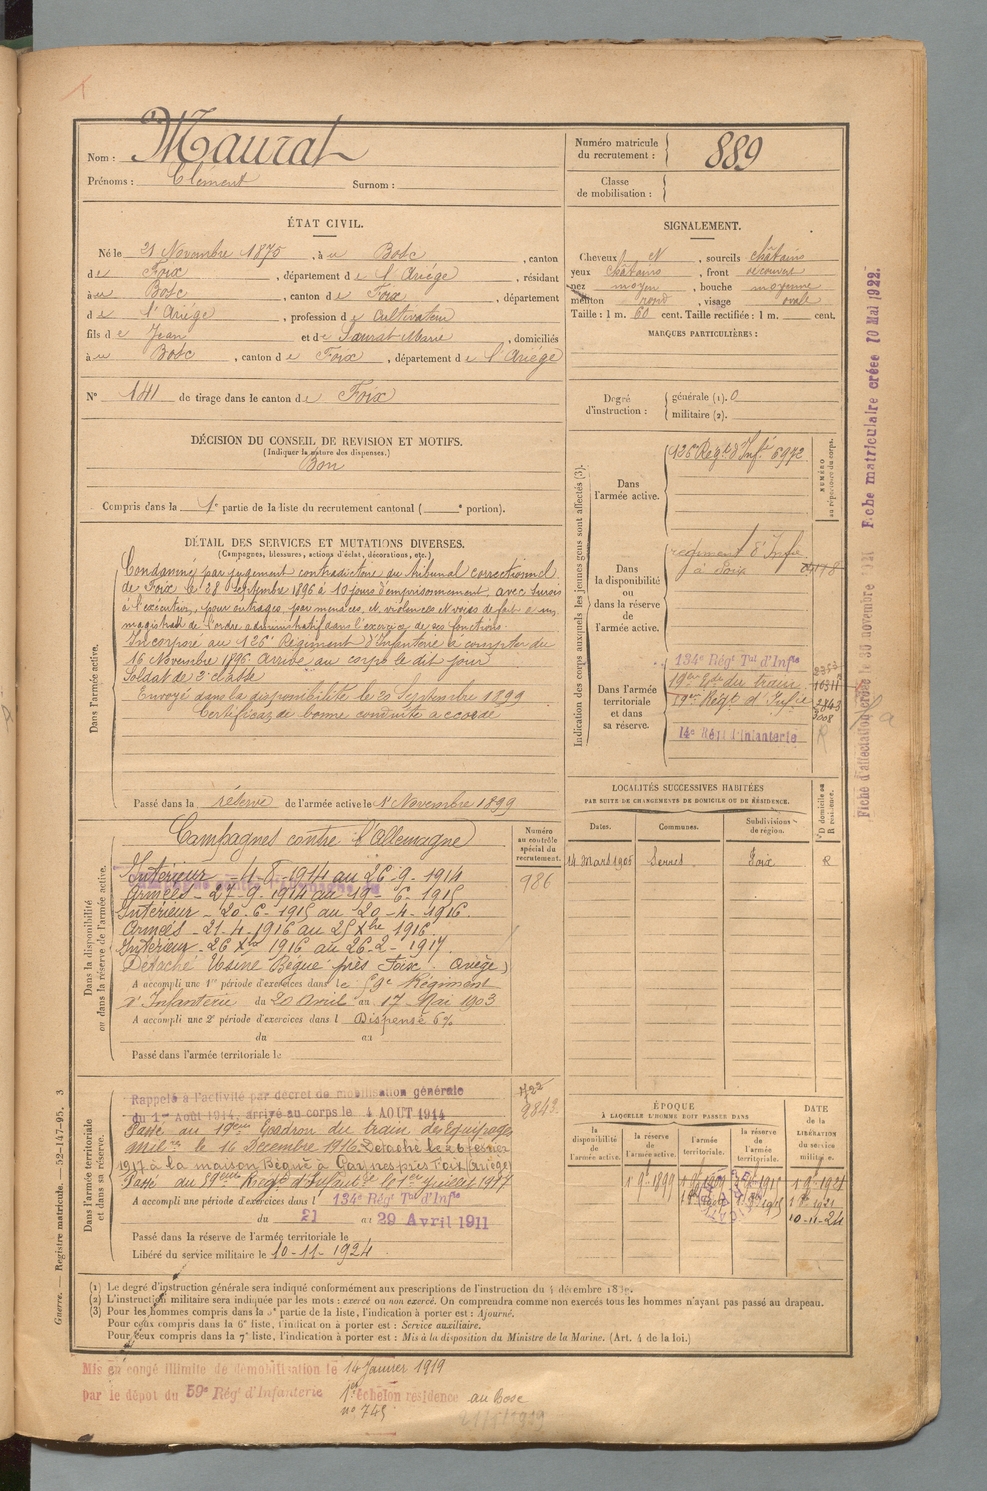 Nom : Maurat
Prénoms : Clément Surnom :
Numéro matricule du recrutement : 889
Classe de mobilisation :
ÉTAT CIVIL.
Né le 21 Novembre 1875, à u Bosc, canton
de Foix, département de l'Ariège, résidant
à u Bosc, canton de Foix, département
de l'Ariège, profession de Cultivateur
fils de Jean et de Marie, domiciliés
à u Bosc, canton de Foix, département de l'Ariège
N° 141 de tirage dans le canton de Foix
DÉCISION DU CONSEIL DE REVISION ET MOTIFS.
(Indiquer la nature des dispenses.)
Bon
Compris dans la 1e partie de la liste du recrutement cantonal ( e portion).
SIGNALEMENT.
Cheveux N, sourcils châtains
yeux châtains, front découvert
nez moyen, bouche moyenne
menton rond, visage ovale
Taille : 1 m. 60 cent. Taille rectifiée : 1 m. cent.
MARQUES PARTICULIÈRES :
Degré d'instruction : générale (1). 0
militaire (2).
DÉTAIL DES SERVICES ET MUTATIONS DIVERSES.
(Campagnes, blessures, actions d'éclat, décorations, etc.)
Dans l'armée active.
Condamné par jugement contradictoire du tribunal correctionnel
de Foix le 28 Septembre 1896 à 10 jours d'emprisonnement avec sursis
à l'exécution, pour outrages par menaces et violences et voies de fait à un
magistrat de l'ordre administratif dans l'exercice de ses fonctions.
Incorporé au 126e Régiment d'Infanterie à compter du
16 Novembre 1896. Arrivé au corps le dit jour
Soldat de 2e classe
Envoyé dans la disponibilité le 20 Septembre 1899
Certificat de bonne conduite accordé
Passé dans la réserve de l'armée active le 1er Novembre 1899
Indication des corps auxquels les jeunes gens sont affectés (3).
NUMÉRO au répertoire du corps.
Dans l'armée active.
126e Régt d'Infie 6972
Dans la disponibilité ou dans la réserve de l'armée active.
régiment d'Infie
à Foix
Dans l'armée territoriale et dans sa réserve.
134e Régt Tal d'Infie
19e Edon du train
Régt d'Infie
14e Régt d'Infanterie
Fiche matriculaire créée 10 Mai 1922.
LOCALITÉS SUCCESSIVES HABITÉES
PAR SUITE DE CHANGEMENTS DE DOMICILE OU DE RÉSIDENCE.
Dates. Communes. Subdivisions de région. D domicile ou R résidence.
14 mars 1906 Serres Foix R
Dans la disponibilité ou dans la réserve de l'armée active.
Numéro au contrôle spécial du recrutement.
986
Campagnes contre l'Allemagne
Intérieur - 4-8-1914 au 26-9-1914
Armées - 27-9-1914 au 19-6-1915
Intérieur - 20-6-1915 au 20-4-1916.
Armées - 21-4-1916 au 25 Xbre 1916.
Intérieur - 26 Xbre 1916 au 26-2-1917.
Détaché Usine Bégué près Foix (Ariège)
A accompli une 1re période d'exercices dans le 59e Régiment
d'Infanterie du 20 Avril au 17 Mai 1903
A accompli une 2e période d'exercices dans l Dispensé 6%
du au
Passé dans l'armée territoriale le
Dans l'armée territoriale et dans sa réserve.
Rappelé à l'activité par décret de mobilisation générale
du 1er Août 1914, arrivé au corps le 4 AOUT 1914
Passé au 19ème Escadron du train des équipages
milres le 16 Décembre 1916. Détaché le 26 février
1917 à la maison Bégué à Garnes près Foix (Ariège)
Passé au 59ème Régt d'Infanterie le 1er Juillet 1917
A accompli une période d'exercices dans l 134e Régt Tal d'Infie
du 21 au 29 Avril 1911
Passé dans la réserve de l'armée territoriale le
Libéré du service militaire le 10-11-1924
9843
ÉPOQUE
À LAQUELLE L'HOMME DOIT PASSER DANS
la disponibilité de l'armée active. la réserve de l'armée active. l'armée territoriale. la réserve de l'armée territoriale.
DATE de la LIBÉRATION du service militaire.
1 9bre 1899
10-11-24
(1) Le degré d'instruction générale sera indiqué conformément aux prescriptions de l'instruction du 4 décembre 1889.
(2) L'instruction militaire sera indiquée par les mots : exercé ou non exercé. On comprendra comme non exercés tous les hommes n'ayant pas passé au drapeau.
(3) Pour les hommes compris dans la 5e partie de la liste, l'indication à porter est : Ajourné.
Pour ceux compris dans la 6e liste, l'indication à porter est : Service auxiliaire.
Pour ceux compris dans la 7e liste, l'indication à porter est : Mis à la disposition du Ministre de la Marine. (Art. 4 de la loi.)
Guerre. — Registre matricule. — 52-147-95. 3
Mis en congé illimité de démobilisation le 14 Janvier 1919
par le dépôt du 59e Régt d'Infanterie 1er échelon résidence au Bosc
n° 745